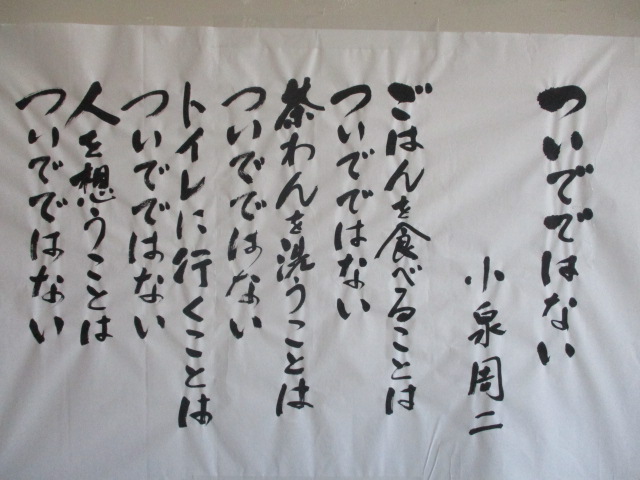 ついでではない
小泉周二
ごはんを食べることは
ついでではない
茶わんを洗うことは
ついでではない
トイレに行くことは
ついでではない
人を想うことは
ついでではない